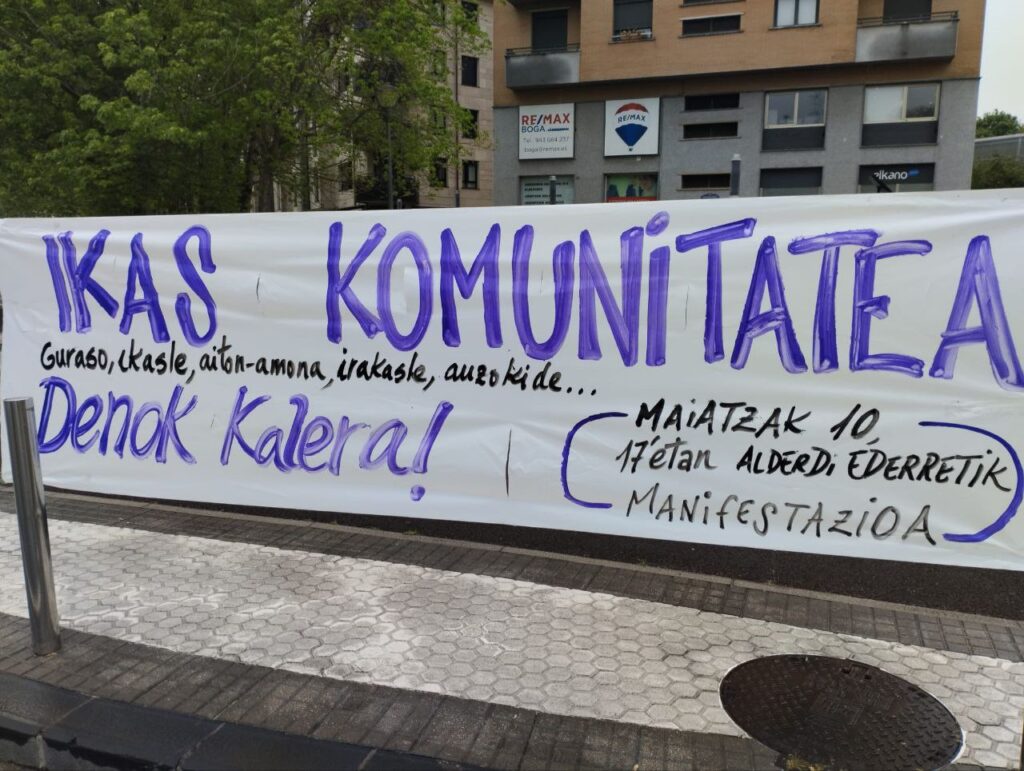 RE/MAX
BOGA
Tel. 943 064 237
boga@remax.es
RE/MAX
elkano
IKAS KOMUNITATEA
Guraso, ikasle, aiton-amona, irakasle, auzokide...
Denok Kalera!
MAIATZAK 10,
17'etan ALDERDI EDERRETIK
MANIFESTAZIOA